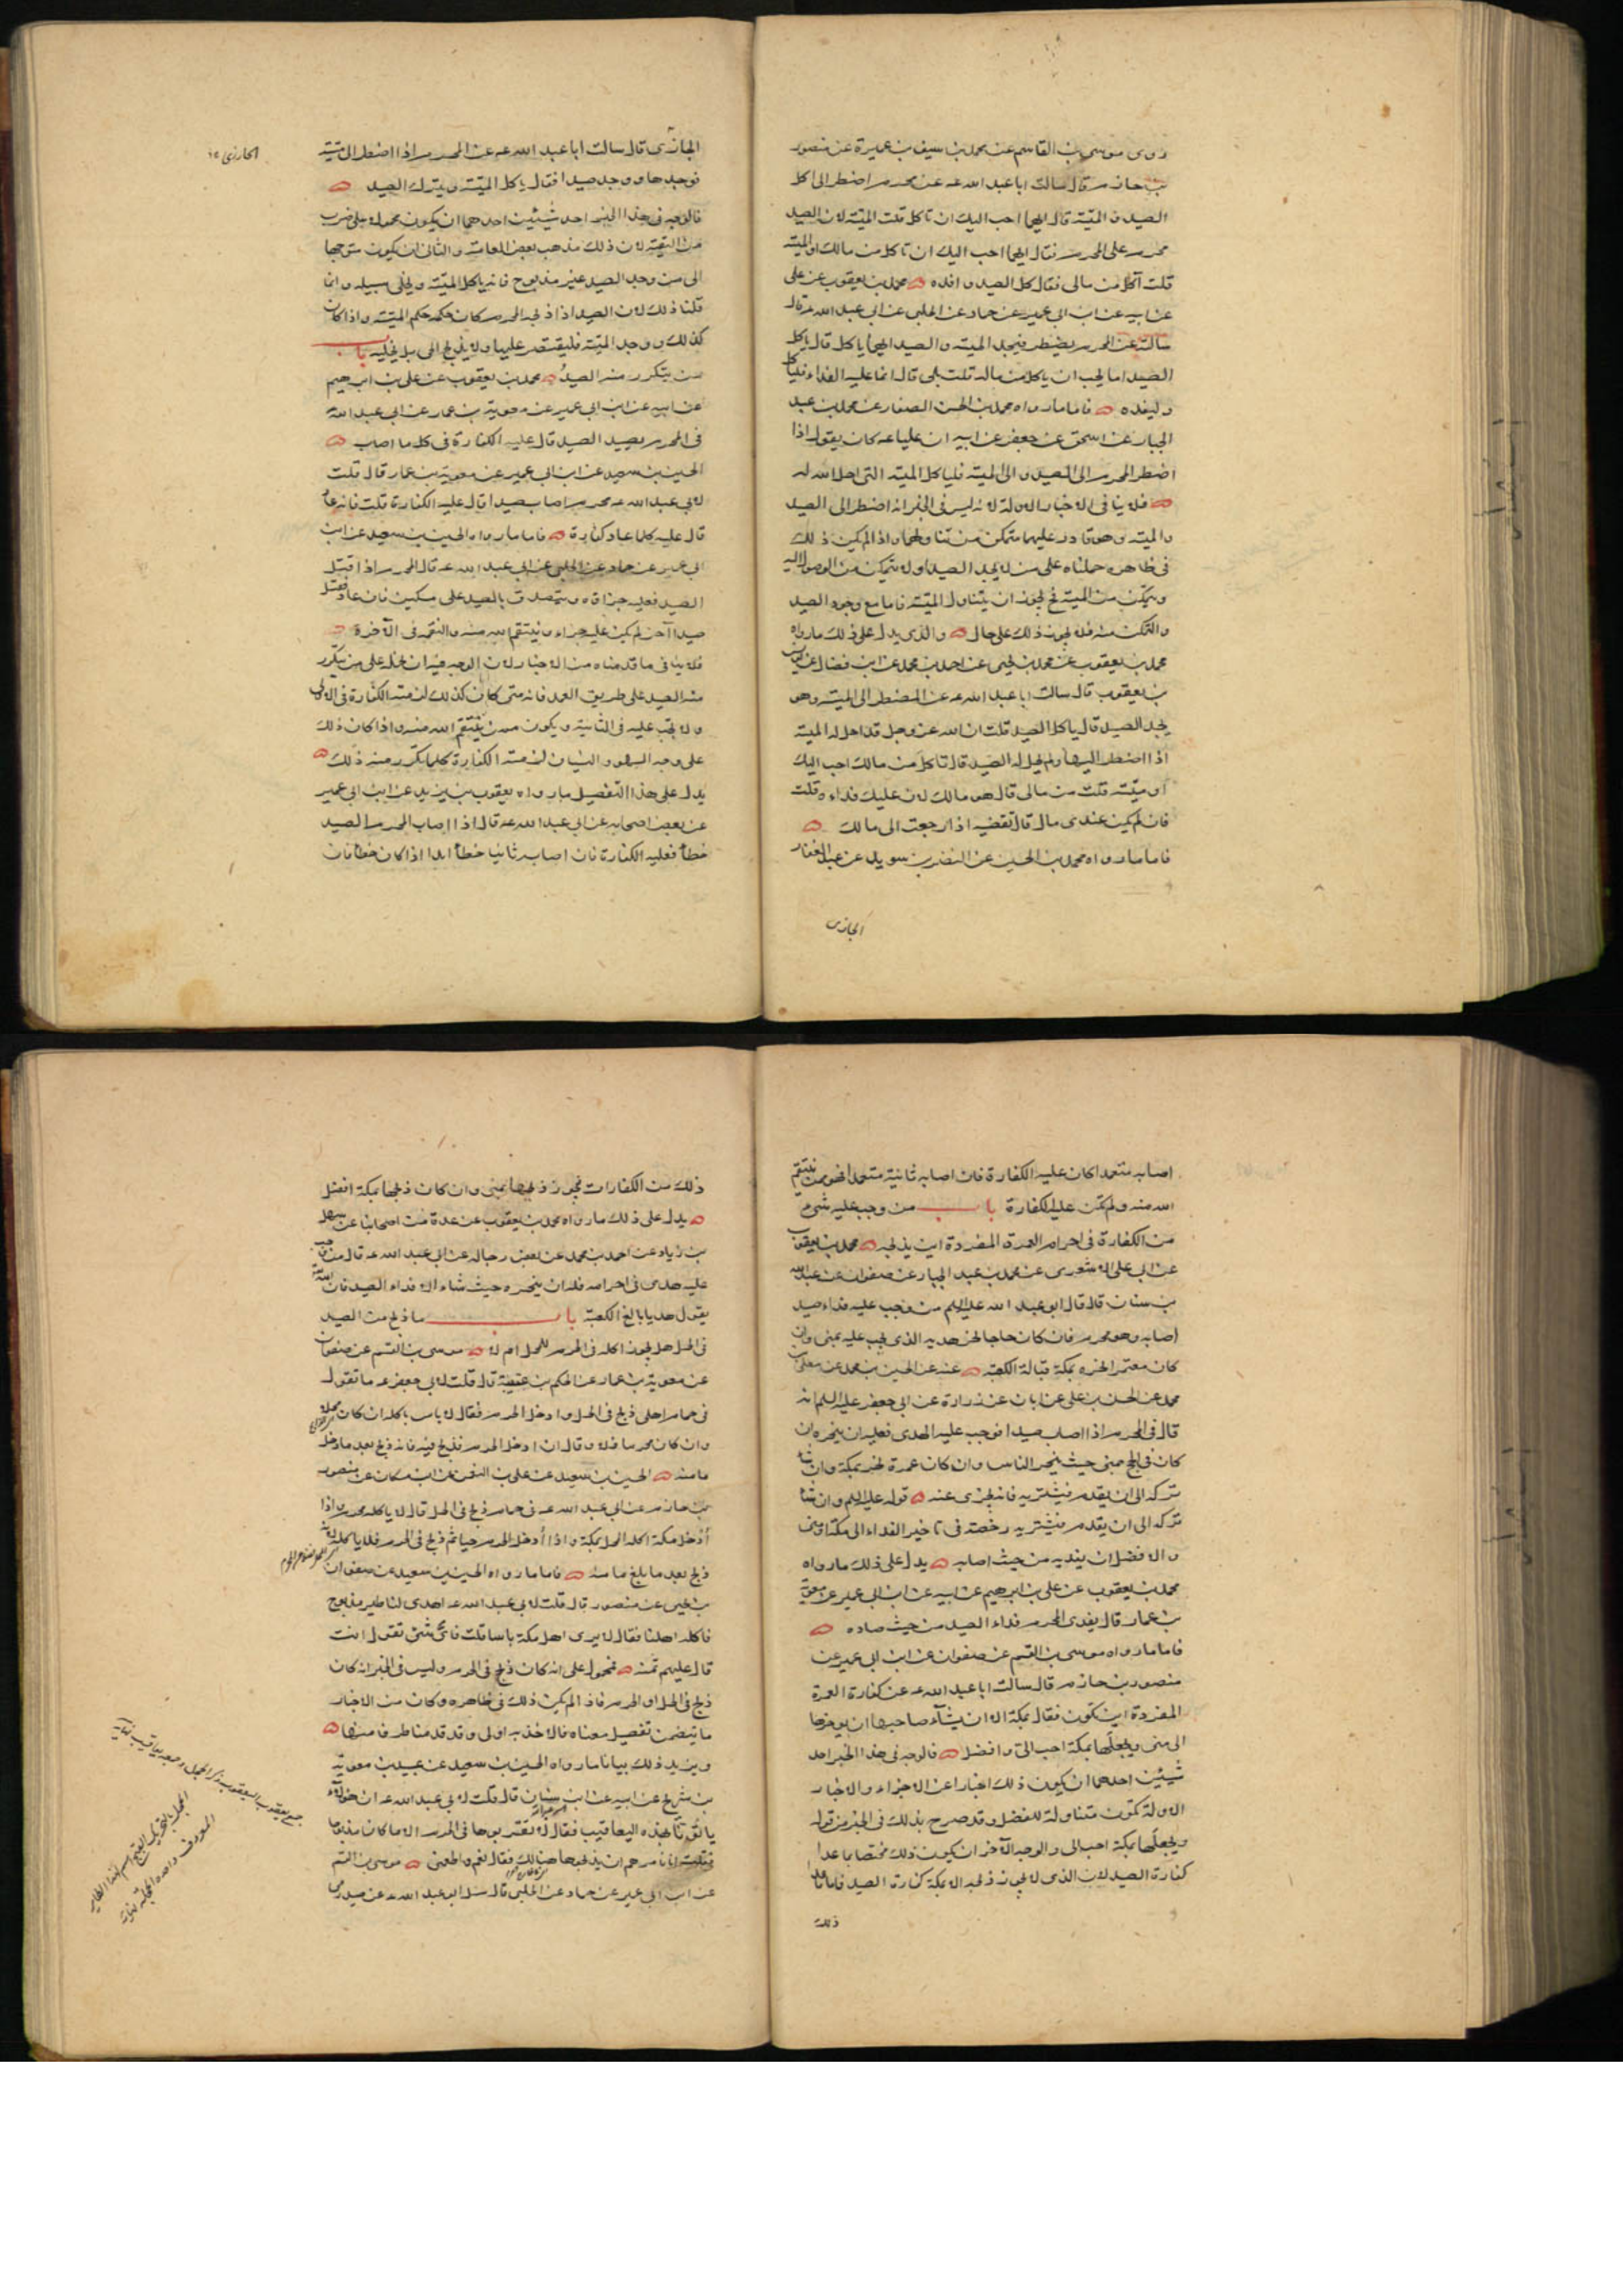 روى موسى بن القاسم عن محمد بن سيف بن عميرة عن منصور
بن حازم قال سالت ابا عبد الله عه عن محرم اضطر الى اكل
الصيد و الميتة قال ايهما احب اليك ان تاكل قلت الميتة لان الصيد
محرم على المحرم فقال ايهما احب اليك ان تاكل من مالك او الميتة
قلت آكل من مالى فقال كل الصيد و افده محمد بن يعقوب عن على
عن ابيه عن ابن ابى عمير عن حماد عن الحلبى عن ابى عبد الله عه قال
سالته عن المحرم يضطر فيجد الميتة و الصيد ايهما ياكل قال ياكل
الصيد اما يحب ان ياكل من ماله قلت بلى قال انما عليه الفداء فلياكل
و ليفده فاما ما رواه محمد بن الحسن الصفار عن محمد بن عبد
الجبار عن اسحق عن جعفر عن ابيه ان عليا عه كان يقول اذا
اضطر المحرم الى الصيد و الى الميتة فلياكل الميتة التى احل الله له
فلا ينافى الاخبار الاولة لانه ليس فى الخبر انه اضطر الى الصيد
و الميتة و هو قادر عليهما متمكن من تناولهما و اذا لم يكن ذلك
فى ظاهره حملناه على من لا يجد الصيد او لا يتمكن من الوصول اليه
و يتمكن من الميتة فح يجوز ان يتناول الميتة فاما مع وجود الصيد
و التمكن منه فلا يجوز ذلك على حال و الذى يدل على ذلك ما رواه
محمد بن يعقوب عن محمد بن يحيى عن احمد بن محمد عن ابن فضال عن يونس
بن يعقوب قال سالت ابا عبد الله عه عن المضطر الى الميتة و هو
يجد الصيد قال ياكل الصيد قلت ان الله عز و جل قد احل له الميتة
اذا اضطر اليها و لم يحل له الصيد قال تاكل من مالك احب اليك
او ميتة قلت من مالى قال هو مالك لان عليك فداءه قلت
فان لم يكن عندى مال قال تقضيه اذا رجعت الى مالك
فاما ما رواه محمد بن الحسين عن النضر بن سويد عن عبد الغفار
الجازى
الجازى قال سالت ابا عبد الله عه عن المحرم اذا اضطر الى ميتة
فوجدها و وجد صيدا فقال ياكل الميتة و يترك الصيد
فالوجه فى هذا الخبر احد شيئين احدهما ان يكون محمولا على ضرب
من التقية لان ذلك مذهب بعض العامة و الثانى ان يكون متوجها
الى من وجد الصيد غير مذبوح فانه ياكل الميتة و يخلى سبيله و انما
قلنا ذلك لان الصيد اذا ذبحه المحرم كان حكمه حكم الميتة و اذا كان
كذلك و وجد الميتة فليقتصر عليها و لا يذبح الحى بل يخليه باب
من يتكرر منه الصيد محمد بن يعقوب عن على بن ابرهيم
عن ابيه عن ابن ابى عمير عن معوية بن عمار عن ابى عبد الله
فى المحرم يصيد الصيد قال عليه الكفارة فى كل ما اصاب
الحسين بن سعيد عن ابن ابى عمير عن معوية بن عمار قال قلت
لابى عبد الله عه محرم اصاب صيدا قال عليه الكفارة قلت فانه عاد
قال عليه كلما عاد كفارة فاما ما رواه الحسين بن سعيد عن ابن
ابى عمير عن حماد عن الحلبى عن ابى عبد الله عه قال المحرم اذا قتل
الصيد فعليه جزاؤه و يتصدق بالصيد على مسكين فان عاد فقتل
صيدا آخر لم يكن عليه جزاء و ينتقم الله منه و النقمة فى الآخرة
فلا ينافى ما قدمناه من الاخبار لان الوجه فيه ان نحمله على من تكرر
منه الصيد على طريق العمد فانه متى كان كذلك لزمته الكفارة فى الاولى
و لا يجب عليه فى الثانية و يكون ممن ينتقم الله منه و اذا كان ذلك
على وجه السهو و النسيان لزمته الكفارة كلما تكرر منه ذلك
يدل على هذا التفصيل ما رواه يعقوب بن يزيد عن ابن ابى عمير
عن بعض اصحابه عن ابى عبد الله عه قال اذا اصاب المحرم الصيد
خطأ فعليه الكفارة فان اصابه ثانيا خطأ ابدا اذا كان خطأ فان
اصابه متعمدا كان عليه الكفارة فان اصابه ثانية متعمدا فهو ممن ينتقم
الله منه و لم تكن عليه الكفارة باب من وجب عليه شىء
من الكفارة فى احرام العمرة المفردة اين يذبحه محمد بن يعقوب
عن ابى على الاشعرى عن محمد بن عبد الجبار عن صفوان عن عبد الله
بن سنان قال قال ابو عبد الله عليه السلم من وجب عليه فداء صيد
اصابه و هو محرم فان كان حاجا نحر هديه الذى يجب عليه بمنى و ان
كان معتمرا نحره بمكة قبالة الكعبة عنه عن الحسين بن محمد عن معلى بن
محمد عن الحسن بن على عن ابان عن زرارة عن ابى جعفر عليه السلم انه
قال فى المحرم اذا اصاب صيدا فوجب عليه الهدى فعليه ان ينحره ان
كان فى الحج بمنى حيث ينحر الناس و ان كان عمرة نحر بمكة و ان شا
تركه الى ان يقدم فيشتريه فانه يجزى عنه قوله عليه السلم و ان شا
تركه الى ان يقدم فيشتريه رخصة فى تاخير الفداء الى مكة او منى
و الافضل ان يفديه من حيث اصابه يدل على ذلك ما رواه
محمد بن يعقوب عن على بن ابرهيم عن ابيه عن ابن ابى عمير عن معوية
بن عمار قال يفدى المحرم فداء الصيد من حيث صاده
فاما ما رواه موسى بن القسم عن صفوان عن ابن ابى عمير عن
منصور بن حازم قال سالت ابا عبد الله عه عن كفارة العمرة
المفردة اين تكون فقال بمكة الا ان يشآء صاحبها ان يوخرها
الى منى و يجعلها بمكة احب الىّ و افضل فالوجه فى هذا الخبر احد
شيئين احدهما ان يكون ذلك اخبارا عن الاجزاء و الاخبار
الاولة تكون متناولة للفضل و قد صرح بذلك فى الخبر من قوله
و يجعلها بمكة احب الى و الوجه الآخر ان يكون ذلك مختصا بما عدا
كفارة الصيد لان الذى لا يجوز ذبحه الا بمكة كفارة الصيد فاما ما عدا
ذلك
ذلك من الكفارات يجوز ذبحها بمنى و ان كان ذبحها بمكة افضل
يدل على ذلك ما رواه محمد بن يعقوب عن عدة من اصحابنا عن سهل
بن زياد عن احمد بن محمد عن بعض رجاله عن ابى عبد الله عه قال من وجب
عليه هدى فى احرامه فله ان ينحره حيث شاء الا فداء الصيد فان الله
يقول هديا بالغ الكعبة باب ما ذبح من الصيد
فى الحل هل يجوز اكله فى الحرم للمحل ام لا موسى بن القسم عن صفوان
عن معوية بن عمار عن الحكم بن عتيبة قال قلت لابى جعفر عه ما تقول
فى حمام اهلى ذبح فى الحل و ادخل الحرم فقال لا باس باكله ان كان محلا
و ان كان محرما فلا و قال ان ادخل الحرم فذبح فيه فانه ذبح بعد ما دخل
مامنه الحسين بن سعيد عن على بن النعمن عن ابن مسكان عن منصور
بن حازم عن ابى عبد الله عه فى حمام ذبح فى الحل قال لا ياكله محرم و اذا
أدخل مكة اكله المحل بمكة و اذا أدخل الحرم حيا ثم ذبح فى الحرم فلا ياكله لانه
ذبح بعد ما بلغ مامنه فاما ما رواه الحسين بن سعيد عن صفوان
بن يحيى عن منصور قال قلت لابى عبد الله عه اهدى لنا طير مذبوح
فاكله اهلنا فقال لا يرى اهل مكة باسا قلت فاى شىء تقول انت
قال عليهم ثمنه فمحمول على انه كان ذبح فى الحرم و ليس فى الخبر انه كان
ذبح فى الحل او الحرم فاذا لم يكن ذلك فى ظاهره و كان من الاخبار
ما يتضمن تفصيل معناه فالاخذ به اولى و قد قدمنا طرفا منها
و يزيد ذلك بيانا ما رواه الحسين بن سعيد عن عبيد بن معوية
بن شريح عن ابيه عن ابن سنان قال قلت لابى عبد الله عه ان هؤلآء
ياتوننا بهذه اليعاقيب فقال لا تقربوها فى الحرم الا ما كان مذبوحا
فقلت انا نامرهم ان يذبحوها هنالك فقال نعم و اطعمنى موسى بن القسم
عن ابن ابى عمير عن حماد عن الحلبى قال سئل ابو عبد الله عه عن صيد رمى